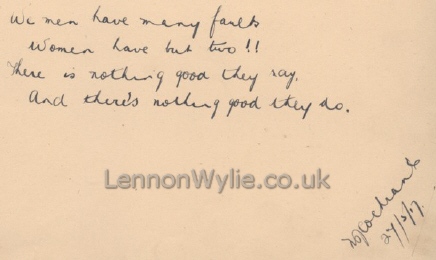 We men have many faults
Women have but two!!
There is nothing good they say.
And there's nothing good they do.
LennonWylie.co.uk
Cochrane
27/3/17.